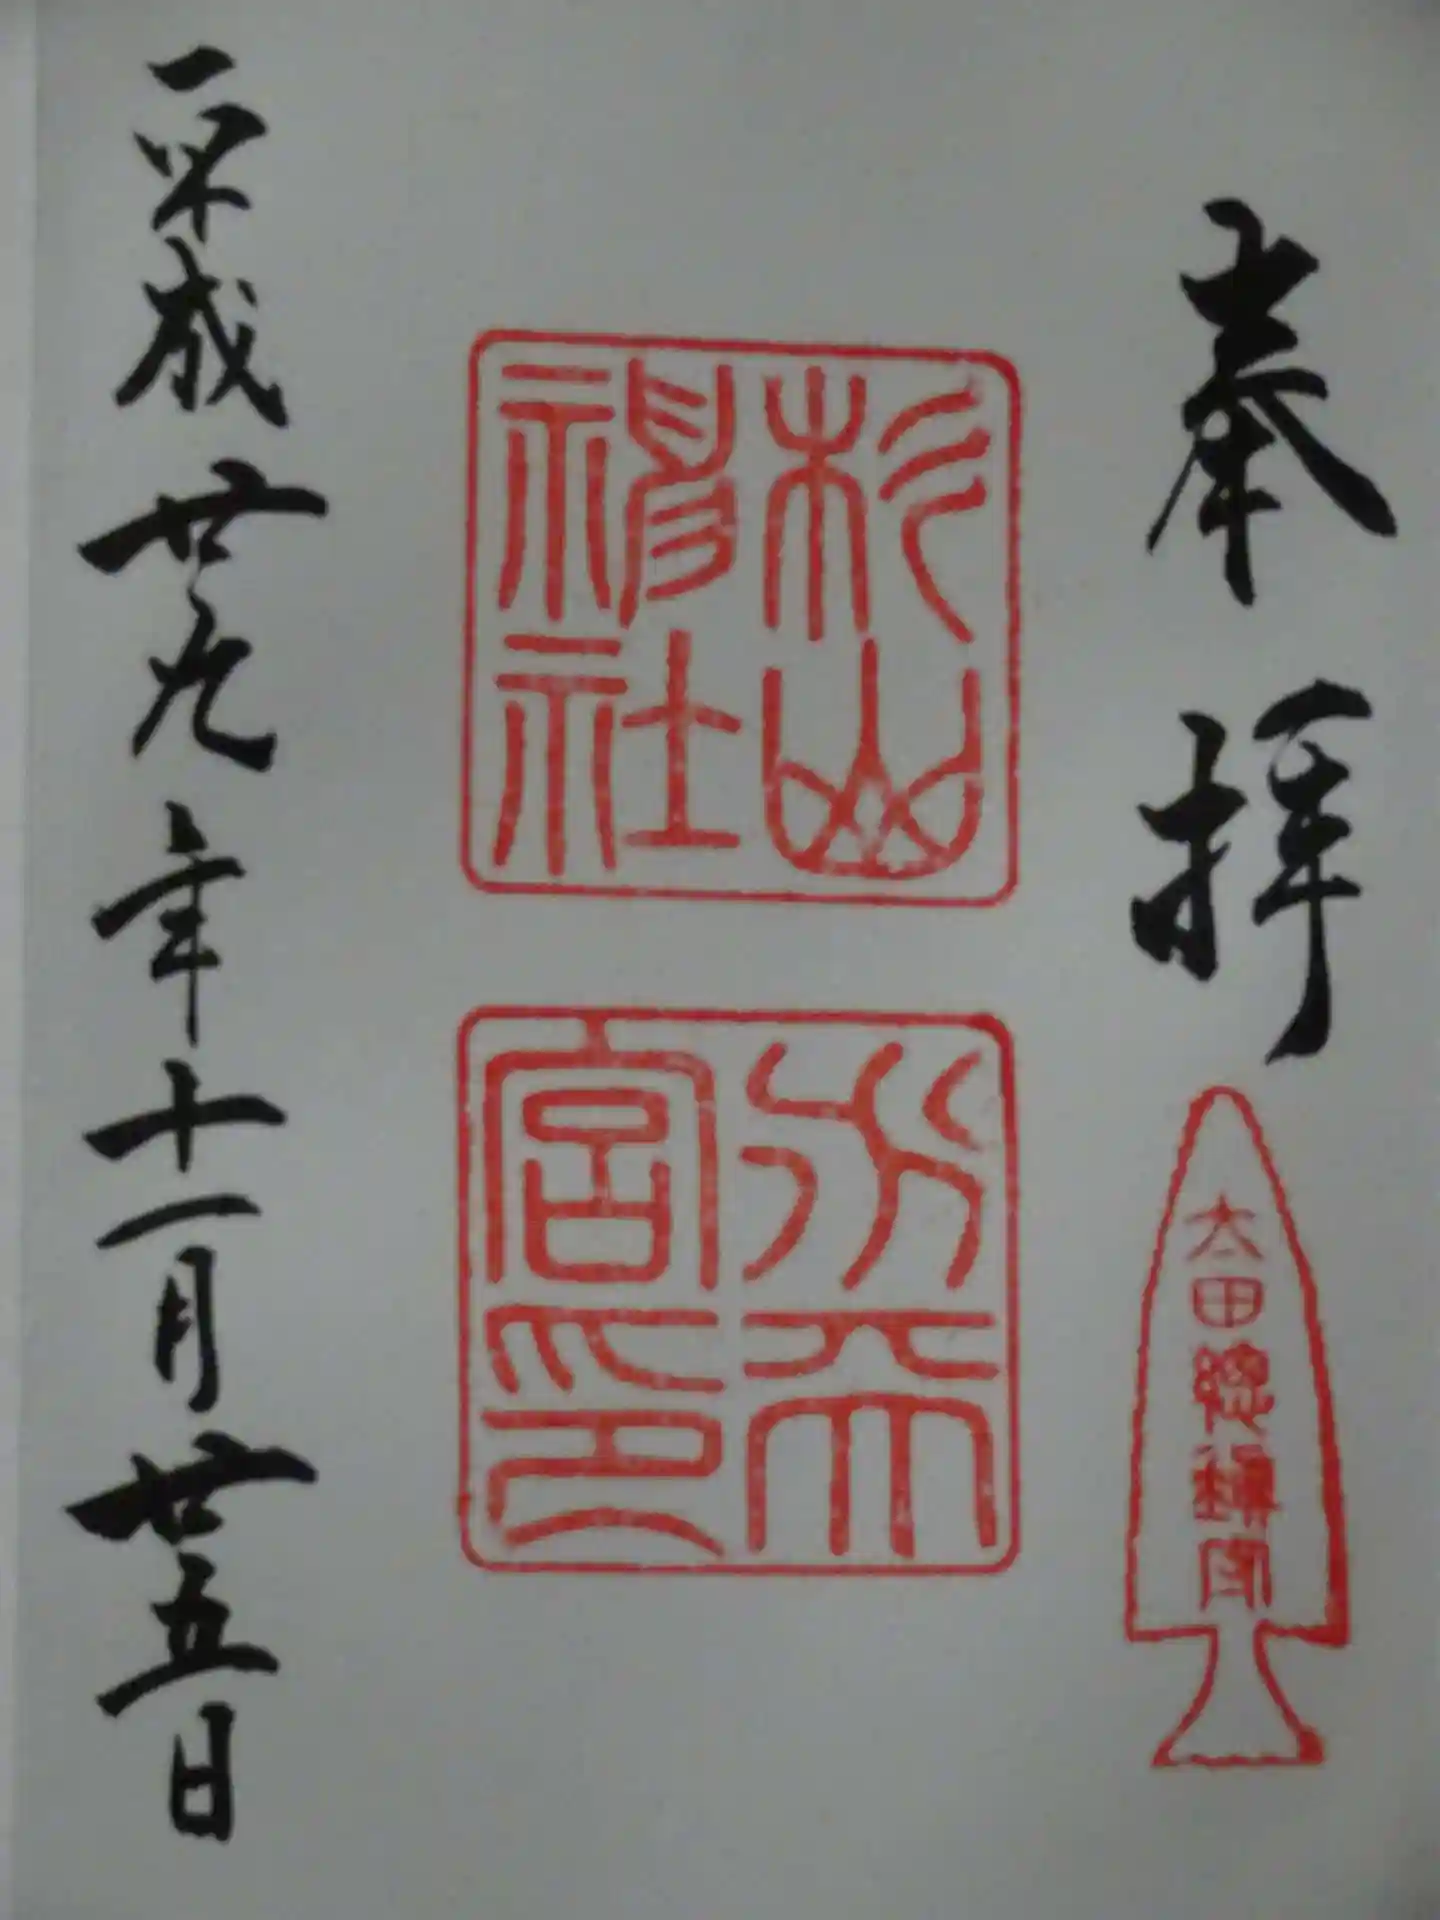 奉拝
太田総鎮守
杉山
神社
水天
宮印
平成廿九年十一月廿五日